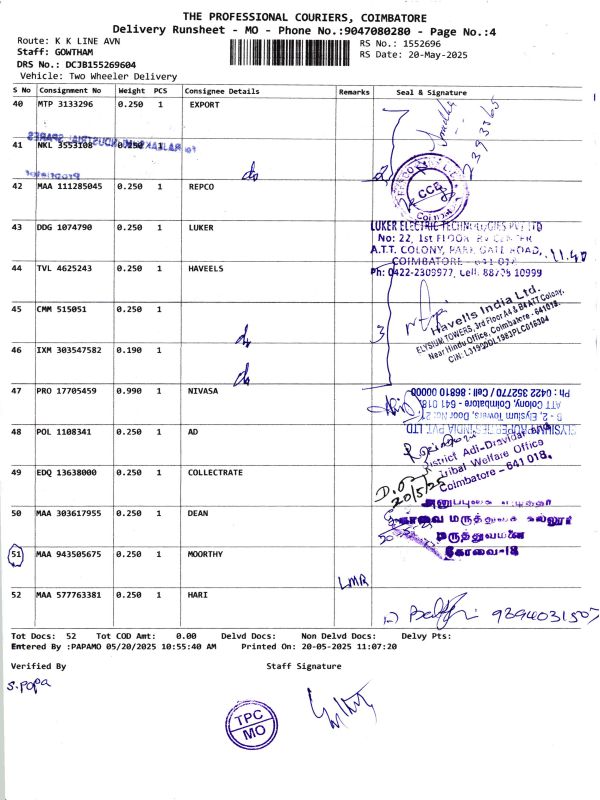 THE PROFESSIONAL COURIERS, COIMBATORE
Delivery Runsheet - MO - Phone No.:9047080280 - Page No.:4
Route: K K LINE AVN
RS No.: 1552696
Staff: GOWTHAM
RS Date: 20-May-2025
DRS No.: DCJB155269604
Vehicle: Two Wheeler Delivery
S No Consignment No Weight PCS Consignee Details Remarks Seal & Signature
40 MTP 3133296 0.250 1 EXPORT
2393365
41 NKL 3553108 0.250 1
42 MAA 111285045 0.250 1 REPCO
CCE
43 DDG 1074790 0.250 1 LUKER
LUKER ELECTRIC TECHNOLOGIES PVT LTD
No: 22, 1st FLOOR
A.T.T. COLONY, PARK GATE ROAD,
COIMBATORE - 641 018
11.40
Ph: 0422-2309977, Cell: 88708 10999
44 TVL 4625243 0.250 1 HAVEELS
Havells India Ltd.
ELYSIUM TOWERS, 3rd Floor A4 & B4 ATT Colony,
Near Hindu Office, Coimbatore - 641018.
CIN: L31900DL1983PLC016304
45 CMM 515051 0.250 1
3
46 IXM 303547582 0.190 1
47 PRO 17705459 0.990 1 NIVASA
ELYSIUM PROPERTIES INDIA PVT. LTD
B - 2, Elysium Towers, Door No: 27,
ATT Colony, Coimbatore - 641 018.
Ph : 0422 352770 / Cell : 86810 00000
48 POL 1108341 0.250 1 AD
District Adi-Dravidar and
Tribal Welfare Office
Coimbatore - 641 018.
49 EDQ 13638000 0.250 1 COLLECTRATE
20/5/25
50 MAA 303617955 0.250 1 DEAN
கோவை மருத்துவக் கல்லூரி
மருத்துவமனை
கோவை-18
51 MAA 943505675 0.250 1 MOORTHY
LMR
52 MAA 577763381 0.250 1 HARI
9394031507
Tot Docs: 52 Tot COD Amt: 0.00 Delvd Docs: Non Delvd Docs: Delvy Pts:
Entered By :PAPAMO 05/20/2025 10:55:40 AM Printed On: 20-05-2025 11:07:20
Verified By Staff Signature
S. Papa
TPC
MO